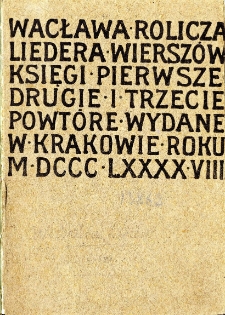 WACŁAWA·ROLICZA
LIEDERA·WIERSZÓW
KSIĘGI·PIERWSZE
DRUGIE·I·TRZECIE
POWTÓRE·WYDANE
W·KRAKOWIE·ROKU
M·DCCC·LXXXX·VIII